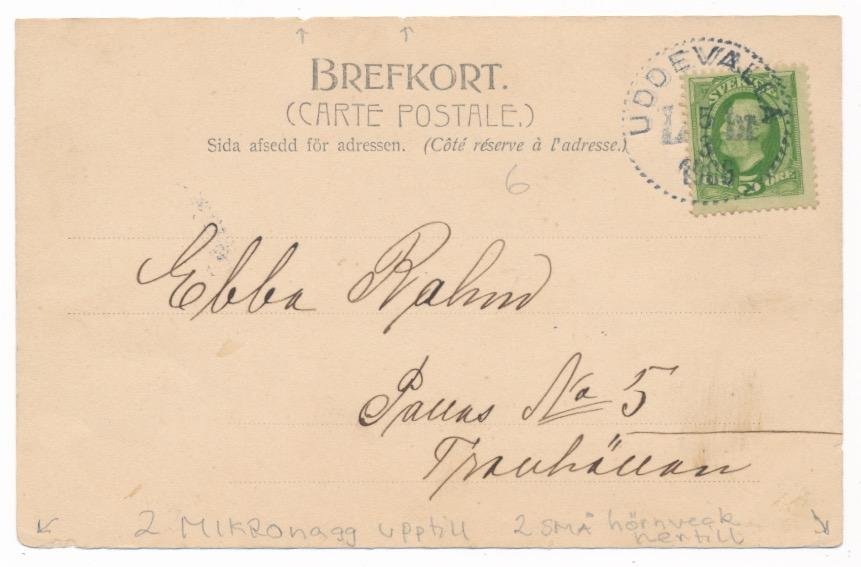 BREFKORT.
(CARTE POSTALE.)
Sida afsedd för adressen. (Côté réserve à l'adresse.)
UDDEVALLA
SVERIGE
5 ÖRE
6
Ebba
No 5
Trollhättan
2 MIKRonagg upptill 2 SMÅ hörnveck
nertill